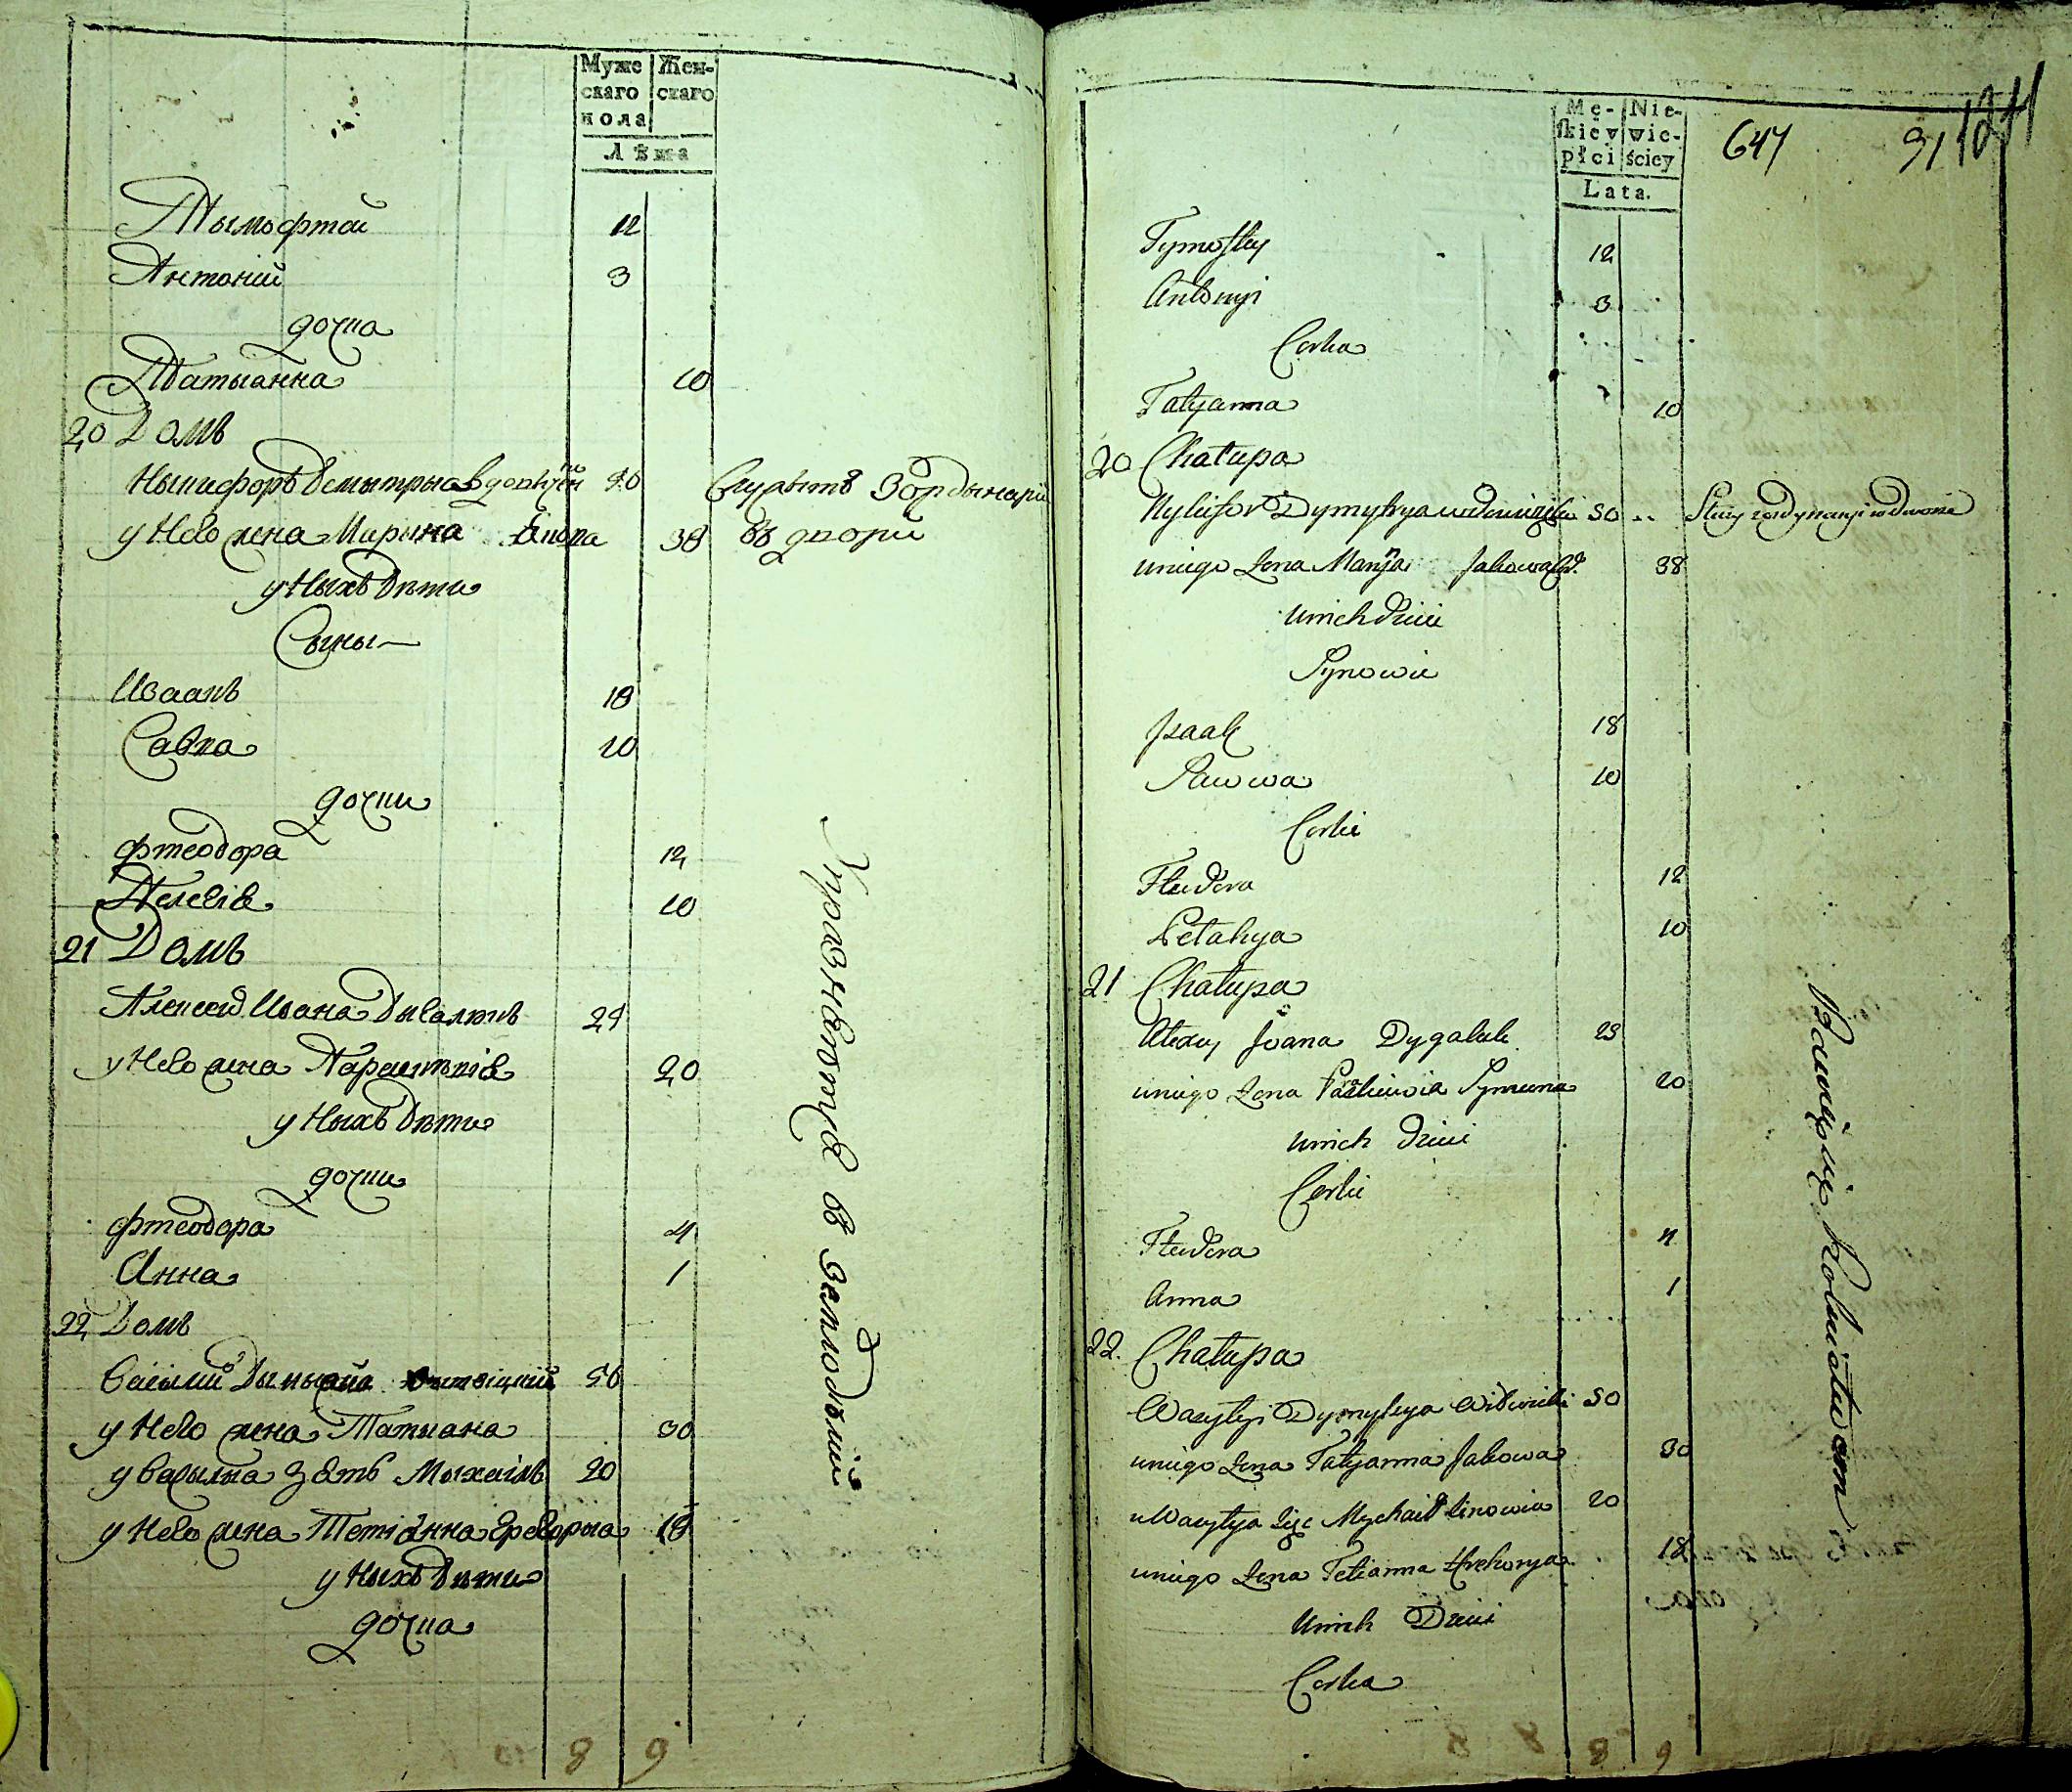 Муже
скаго
пола
Жен-
скаго
Лѣта
Тымофтей 12
Антоній 3
дочка
Татыанна 10
20 Домъ
Ныкифоръ Демытрыа 50 Служытъ Зордынаріи
у Него жена Марина 38 въ дворѣ
у Ныхъ Дѣти
Сыны
Исаакъ 18
Савка 10
дочки
Фтеодора 12
10
21 Домъ
Алексей Ивана Дыгалюкъ 29
у Него жена Параскевія 20
у Ныхъ Дѣти
дочки
Фтеодора 4
Анна 1
22 Домъ
Васылій 50
у Него жена Татиана 30
у Васылыа Зять Михаілъ 20
у Него жена Тетіанна Грегорыа 18
у Ныхъ Дѣти
дочка
8 6
въ
Mę-
skiey
płci
Nie-
wie-
ściey
Lata.
647 31
Tymoftey 12
Antonyi 3
Corka
Tatyanna 10
20 Chałupa
Nykifor Dymytrya 50 Służy zordynaryi wdworze
uniego Żona Marya Jakowa 38
unich dzieci
Synowie
Jzaak 18
Sawwa 10
Corki
Fteodora 12
Pelahya 10
21 Chałupa
Alexey Jwana Dygaluk 29
uniego Żona Paraskiewia Symeona 20
unich dzieci
Corki
Fteodora 4
Anna 1
22. Chałupa
Wasylyi Dymytrya Witwicki 50
uniego Żona Tatyanna Jakowa 30
uWasylya Zięć Mychaił 20
uniego Żona Tetianna Hrehorya 18
Unich Dzieci
Corka
8 6